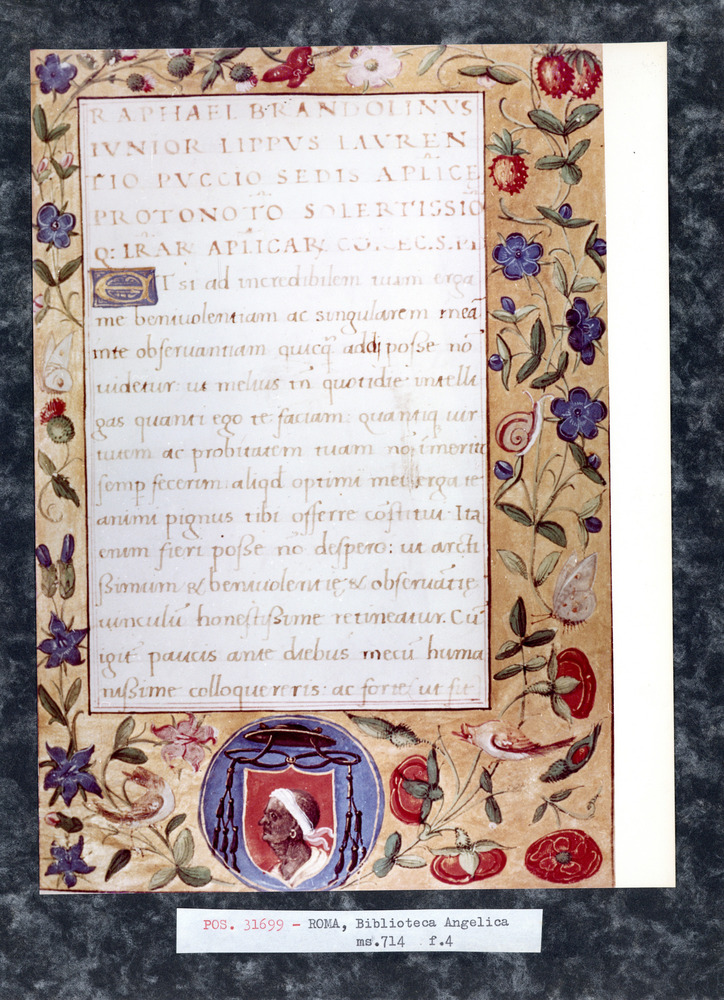 RAPHAEL BRANDOLINVS
IVNIOR LIPPVS LAVREN
TIO PVCCIO SEDIS APLICE
PROTONOTO SOLERTISSIO
Q: LRAR APLICAR
ETsi ad incredibilem tuam erga
me beniuolentiam ac singularem meā
inte obseruantiam quicq̄ addi posse nō
uidetur: ut melius tn̄ quotidie intelli
gas quanti ego te faciam: quantiq; uir
tutem ac probitatem tuam nō īmerito
semp fecerim: aliqd optimi mei erga te
animi pignus tibi offerre cōstitui. Ita
enim fieri posse nō despero: ut arcti
ssimum & beniuolentię & obseruātię
uinculū honestissime retineatur. Cū
igit̄ paucis ante diebus mecū huma
nissime colloquereris: ac forte, ut fit
POS. 31699 - ROMA, Biblioteca Angelica
ms.714 f.4